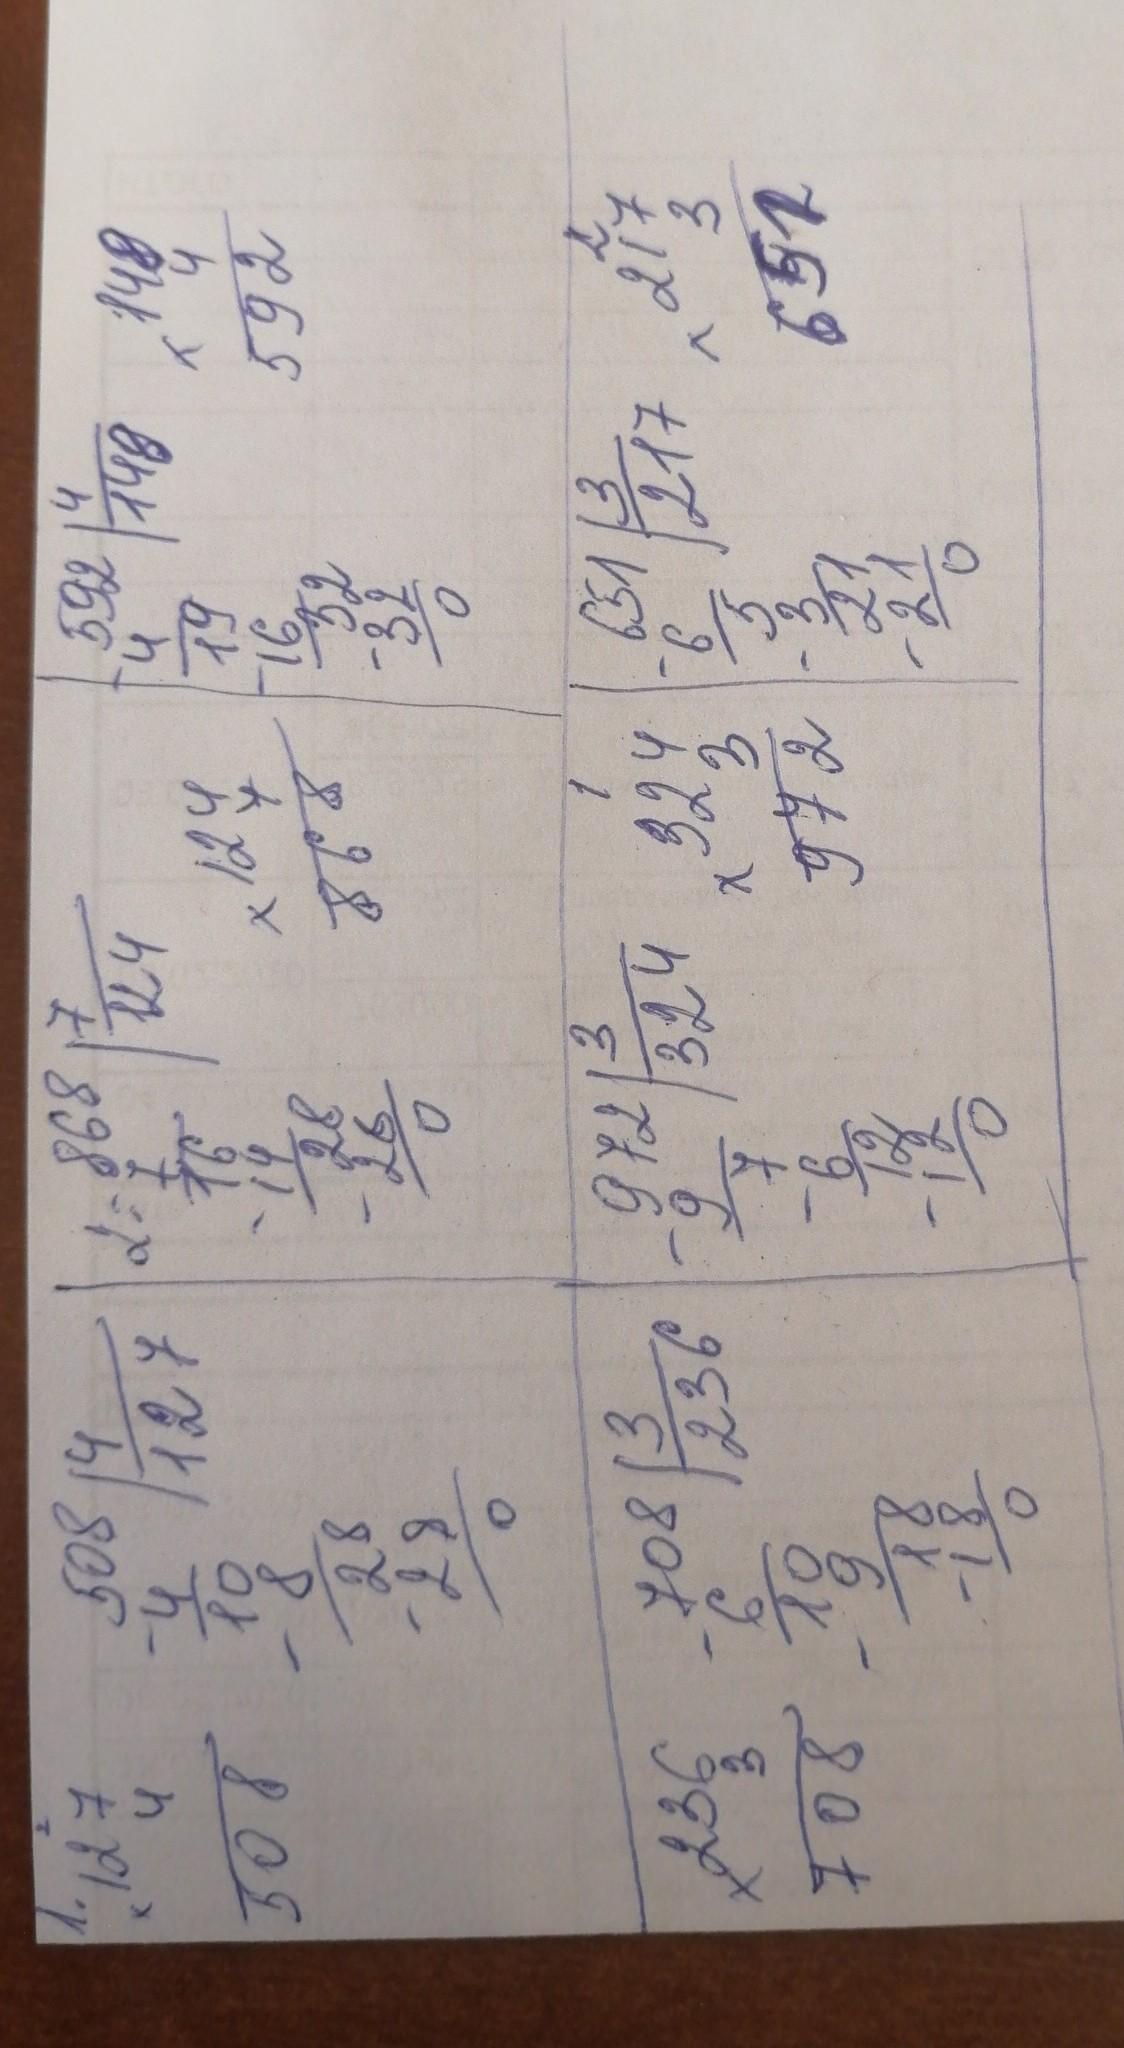 1. 2
×127
4
508
508 | 4
-4 127
10
-8
28
-28
0
2. 868 | 7
-7 124
16
-14
28
-28
0
×124
7
868
592 | 4
-4 148
19
-16
32
-32
0
×148
4
592
×236
3
708
708 | 3
-6 236
10
-9
18
-18
0
972 | 3
-9 324
7
-6
12
-12
0
1
×324
3
972
651 | 3
-6 217
5
-3
21
-21
0
2
×217
3
651